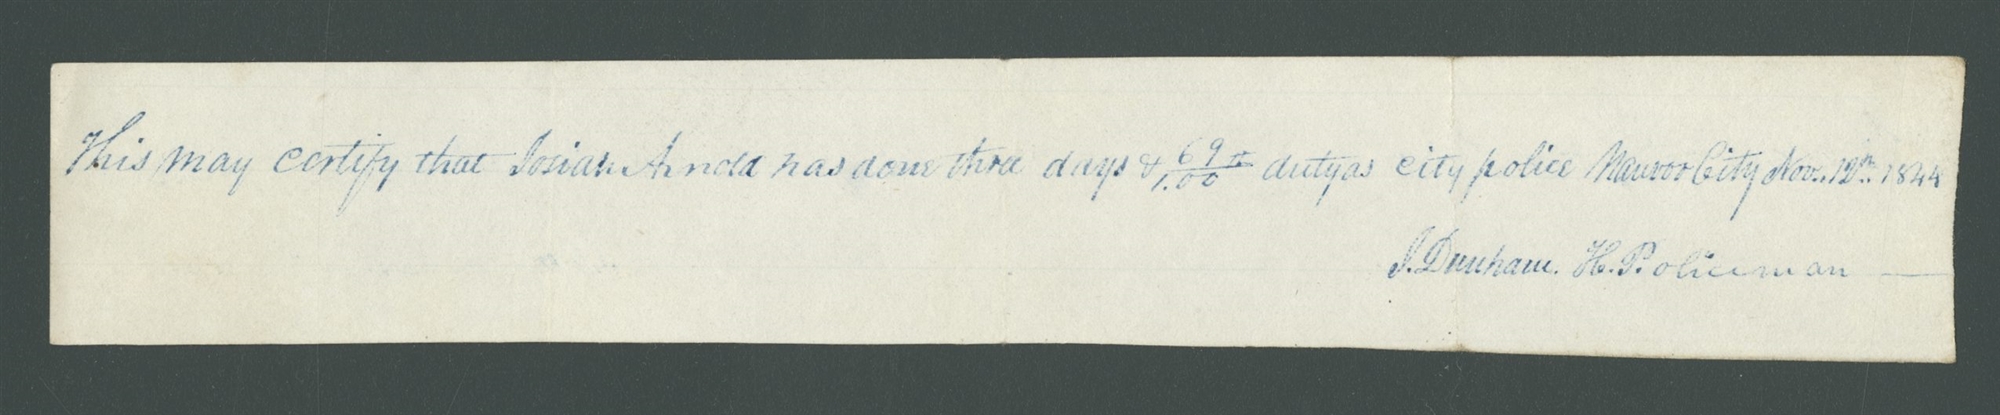 This may certify that Josiah Arnold has done three days & 69/1.00 duty as city police Nauvoo City Nov. 12th. 1844
J. Dunham. H. Policeman